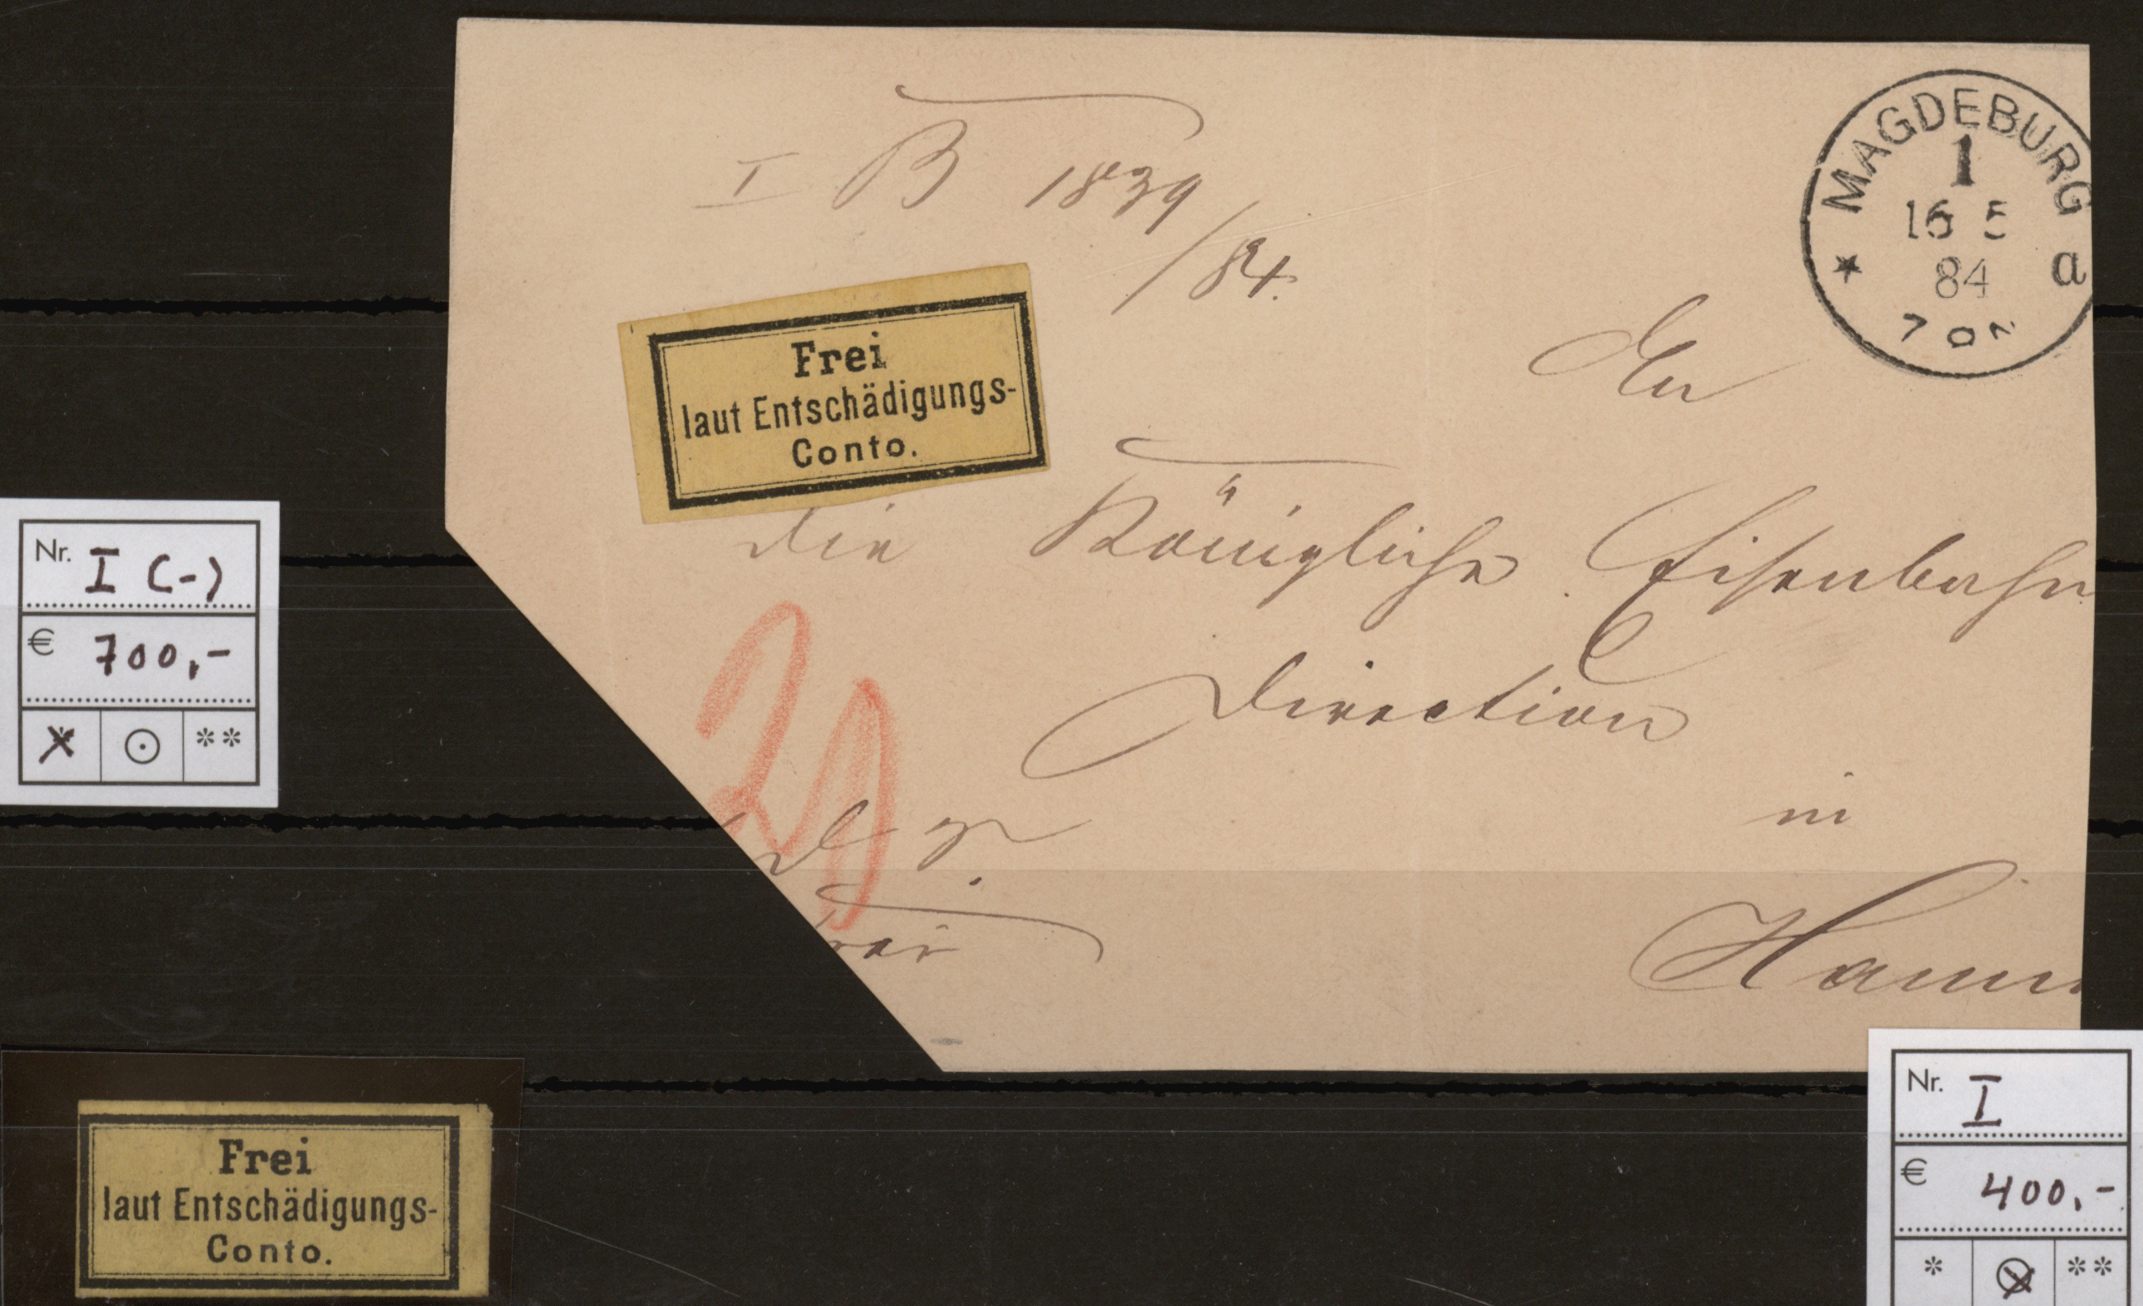 I B 1839
/84.
MAGDEBURG
1
16 5
84
* a
7 8 N
Frei
laut Entschädigungs-
Conto.
An
die Königliche Eisenbahn
Direction
in
Hann
20
Nr. I (-)
€ 700,-
* ⊙ **
Frei
laut Entschädigungs-
Conto.
Nr. I
€ 400,-
* ⊙ **